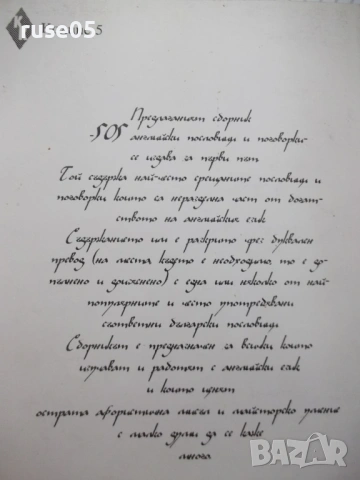 ruse05
5
Предлаганият сборник
505 английски пословици и поговорки
се издава за първи път
Той съдържа най-често срещаните пословици и
поговорки които са неразделна част от богат-
ството на английския език
Съдържанието им е разкрито чрез буквален
превод (на места където е необходимо, то е до-
пълнено и движено) с една или няколко от най-
популярните и често употребявани
съответни български пословици
Сборникът е предназначен за всички които
изучават и работят с английски език
и които ценят
острата афористична мисъл и майсторско умение
с малко думи да се каже
много
bazar.bg